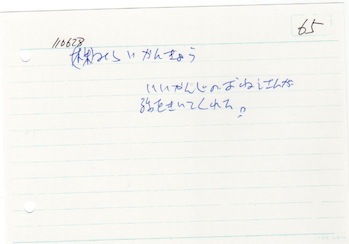 65
110628
(株)みらいかんきょう
いいかんじのおねえさんが
話をきいてくれた。